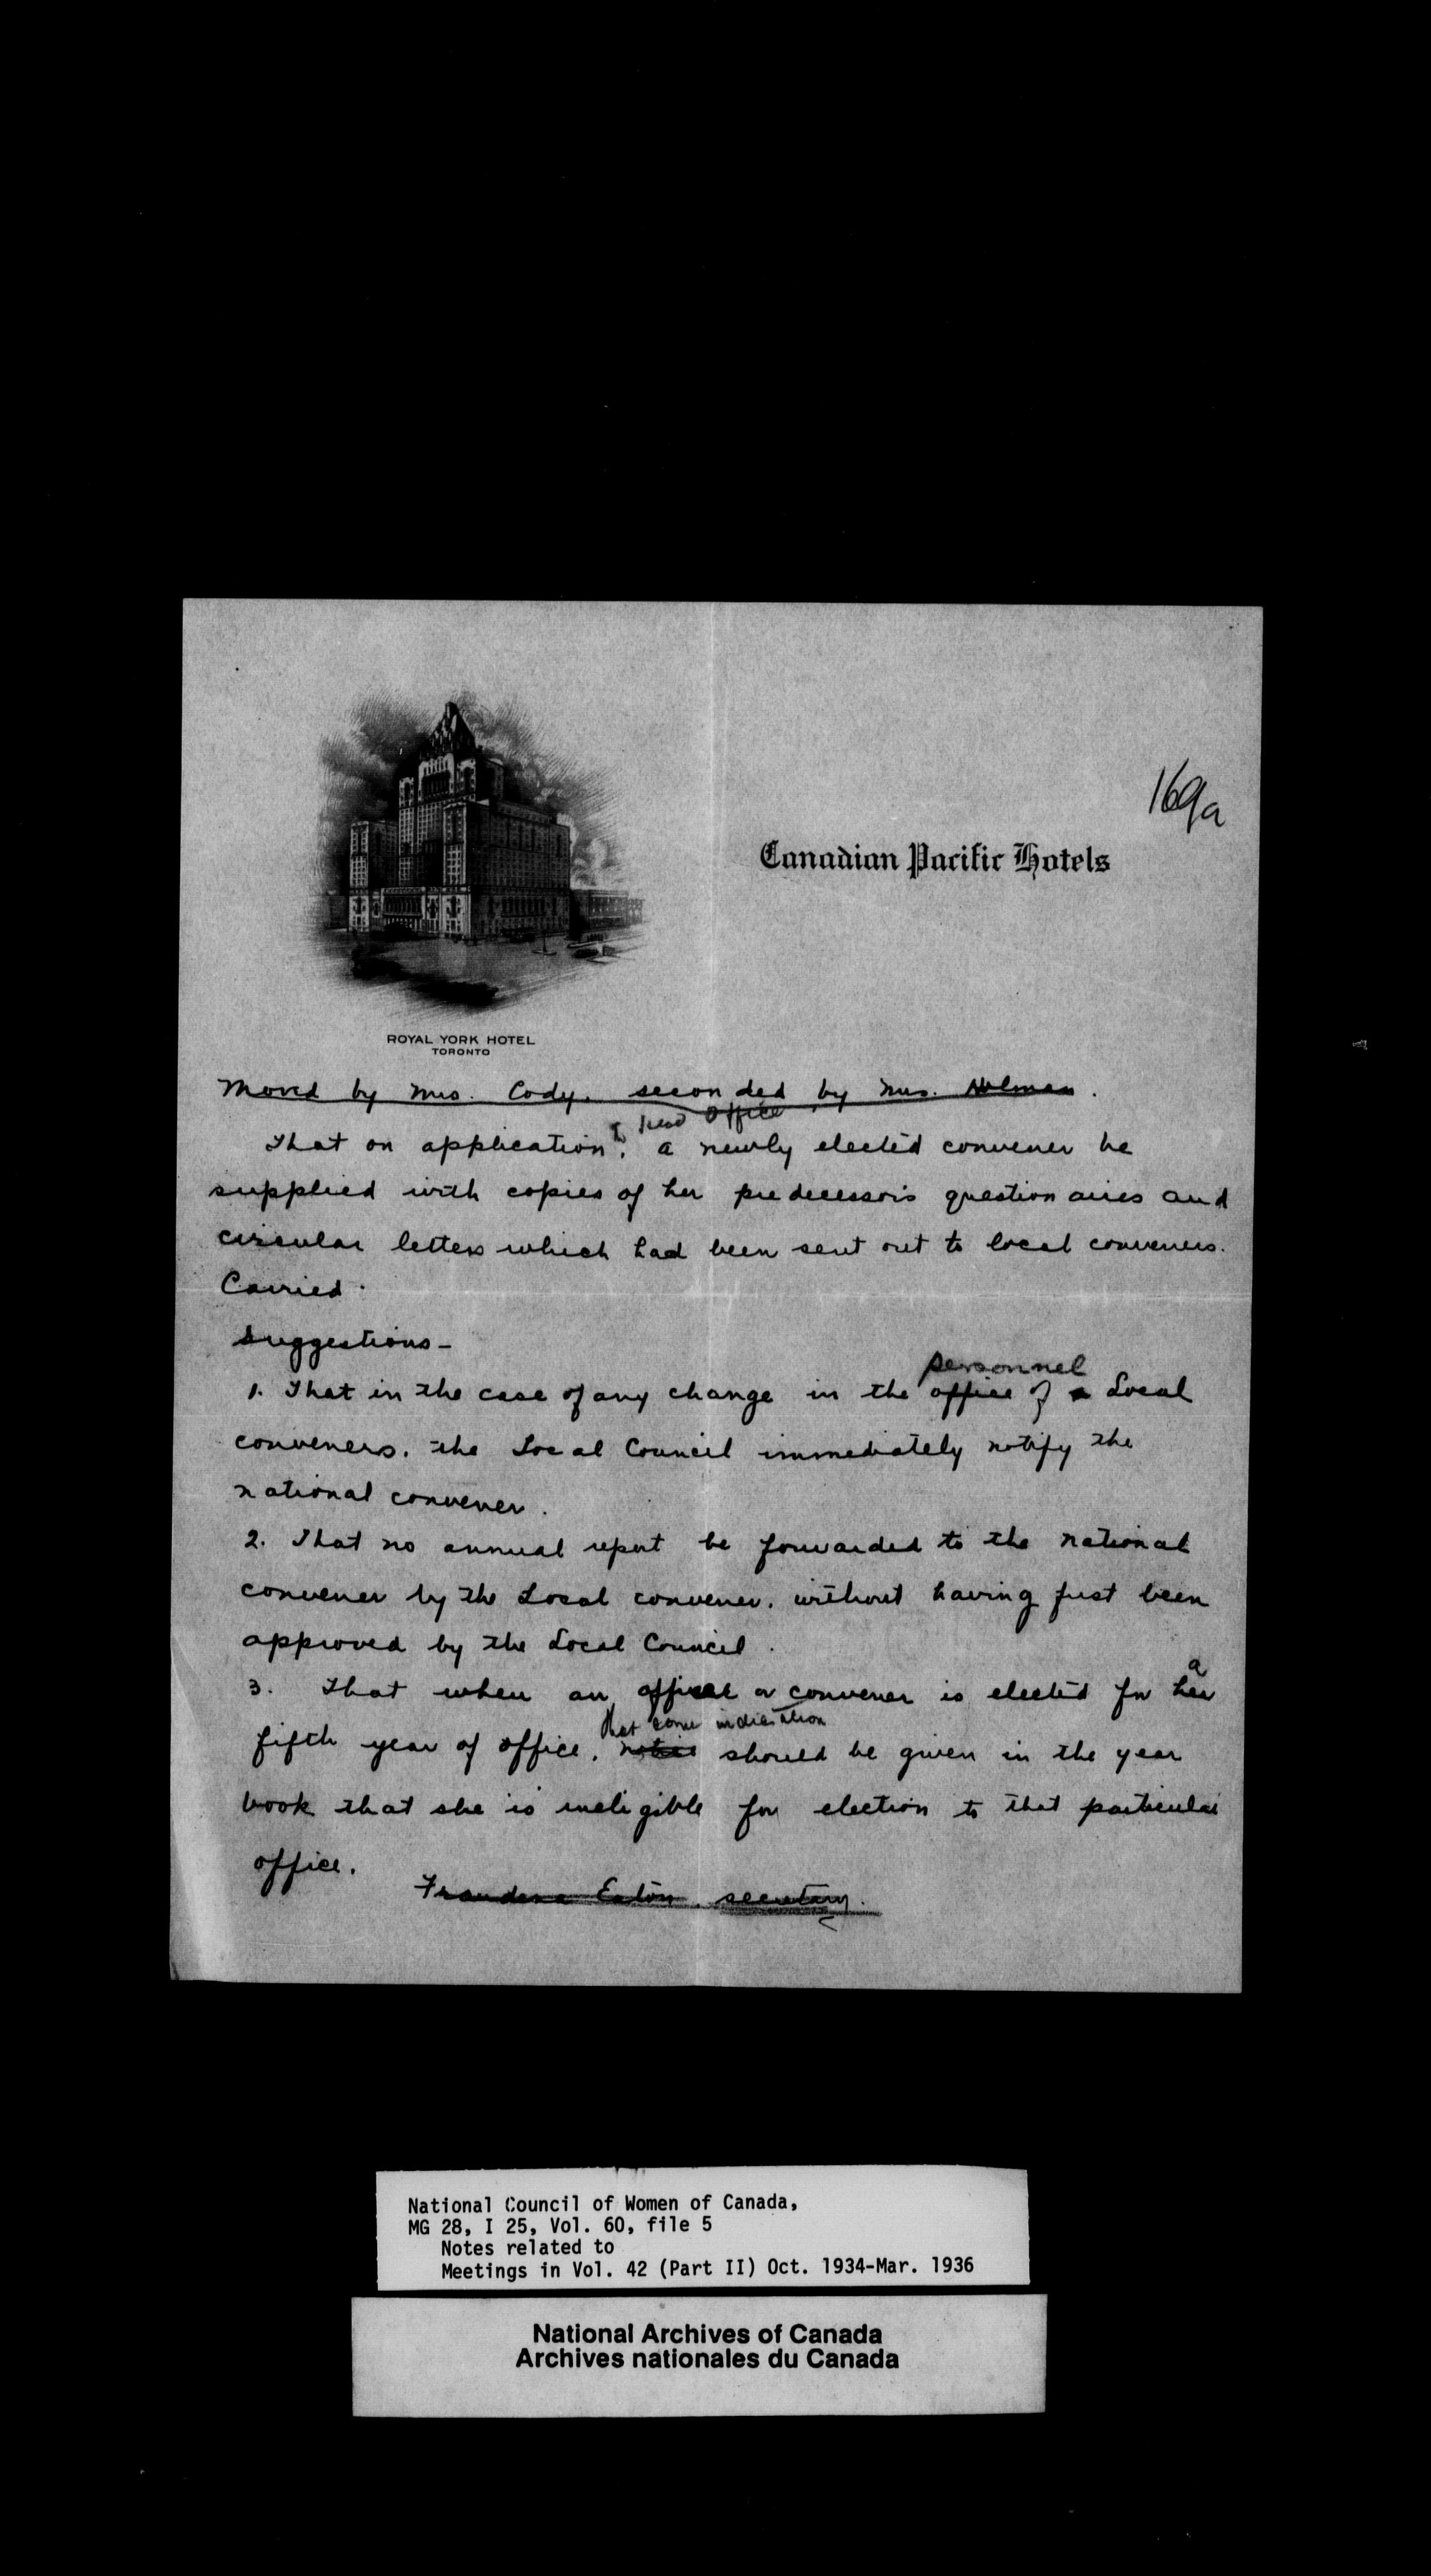 169a
Canadian Pacific Hotels
ROYAL YORK HOTEL
TORONTO
Moved by Mrs. Cody. seconded by Mrs.
to Head Office
That on application, a newly elected convener be
supplied with copies of her predecessor's questionaires and
circular letters which had been sent out to local conveners.
Carried.
Suggestions-
personnel
1. That in the case of any change in the office of a Local
conveners. the Local Council immediately notify the
national convener.
2. That no annual report be forwarded to the national
convener by the Local convener. without having first been
approved by the Local Council.
a
3. That when an officer or convener is elected for her
that some indication
fifth year of office, notice should be given in the year
book that she is ineligible for election to that particular
office.
Eaton. secretary.
National Council of Women of Canada,
MG 28, I 25, Vol. 60, file 5
Notes related to
Meetings in Vol. 42 (Part II) Oct. 1934-Mar. 1936
National Archives of Canada
Archives nationales du Canada